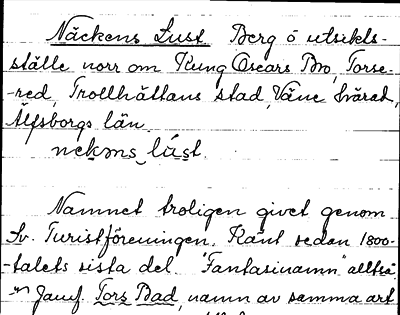 Näckens Lust Berg o utsikts-
ställe norr om Kung Oscars Bro, Torse-
-red, Trollhättans stad, Väne härad,
Älfsborgs län.
nekəns lúst.
Namnet troligen givet genom
Sv. Turistföreningen. Känt sedan 1800-
-talets sista del. "Fantasinamn" alltså
Jämf. Tors Bad, namn av samma art